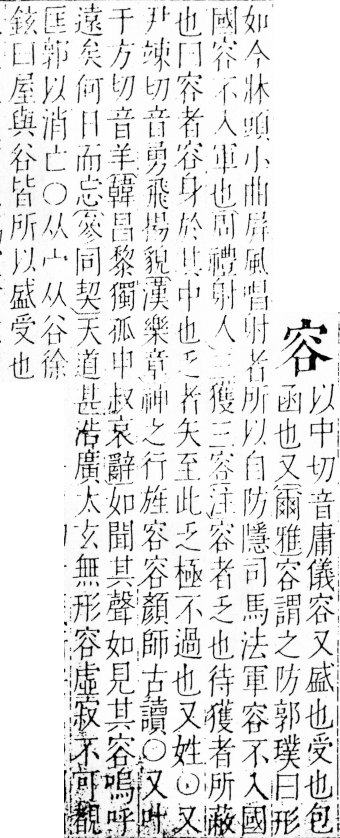 容
以中切音庸儀容又盛也受也包
函也又爾雅容謂之防郭璞曰形
如今牀頭小曲屏風唱射者所以自防隱司馬法軍容不入國
國容不入軍也周禮射人三獲三容注容者乏也待獲者所蔽
也曰容者容身於其中也乏者矢至此乏極不過也又姓○又
尹竦切音勇飛揚貌漢樂章神之行旌容容顏師古讀○又叶
于方切音羊韓昌黎獨孤申叔哀辭如聞其聲如見其容嗚呼
遠矣何日而忘參同契天道甚浩廣太玄無形容虛寂不可覩
匡郭以消亡○从宀从谷徐
鉉曰屋與谷皆所以盛受也